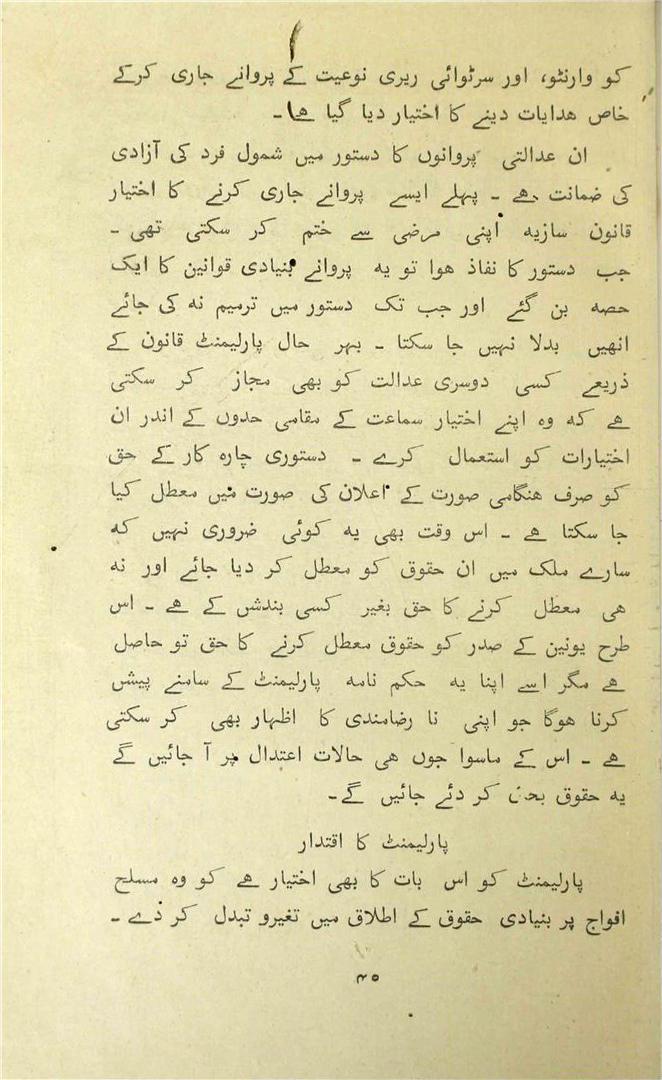 کو وارنٹو، اور سرٹوائی ریری نوعیت کے پروانے جاری کرکے
خاص ھدایات دینے کا اختیار دیا گیا ھے۔
ان عدالتی پروانوں کا دستور میں شمول فرد کی آزادی
کی ضمانت ھے ۔ پہلے ایسے پروانے جاری کرنے کا اختیار
قانون سازیہ اپنی مرضی سے ختم کر سکتی تھی ۔
جب دستور کا نفاذ ھوا تو یہ پروانے بنیادی قوانین کا ایک
حصہ بن گئے اور جب تک دستور میں ترمیم نہ کی جائے
انھیں بدلا نہیں جا سکتا ۔ بہر حال پارلیمنٹ قانون کے
ذریعے کسی دوسری عدالت کو بھی مجاز کر سکتی
ھے کہ وہ اپنے اختیار سماعت کے مقامی حدوں کے اندر ان
اختیارات کو استعمال کرے ۔ دستوری چارہ کار کے حق
کو صرف ھنگامی صورت کے اعلان کی صورت میں معطل کیا
جا سکتا ھے ۔ اس وقت بھی یہ کوئی ضروری نہیں کہ
سارے ملک میں ان حقوق کو معطل کر دیا جائے اور نہ
ھی معطل کرنے کا حق بغیر کسی بندشں کے ھے ۔ اس
طرح یونین کے صدر کو حقوق معطل کرنے کا حق تو حاصل
ھے مگر اسے اپنا یہ حکم نامہ پارلیمنٹ کے سامنے پیشں
کرنا ھوگا جو اپنی نا رضامندی کا اظہار بھی کر سکتی
ھے ۔ اس کے ماسوا جوں ھی حالات اعتدال پر آ جائیں گے
یہ حقوق کر دئے جائیں گے۔
پارلیمنٹ کا اقتدار
پارلیمنٹ کو اس بات کا بھی اختیار ھے کو وہ مسلح
افواج پر بنیادی حقوق کے اطلاق میں تغیرو تبدل کر دے ۔
۴۵